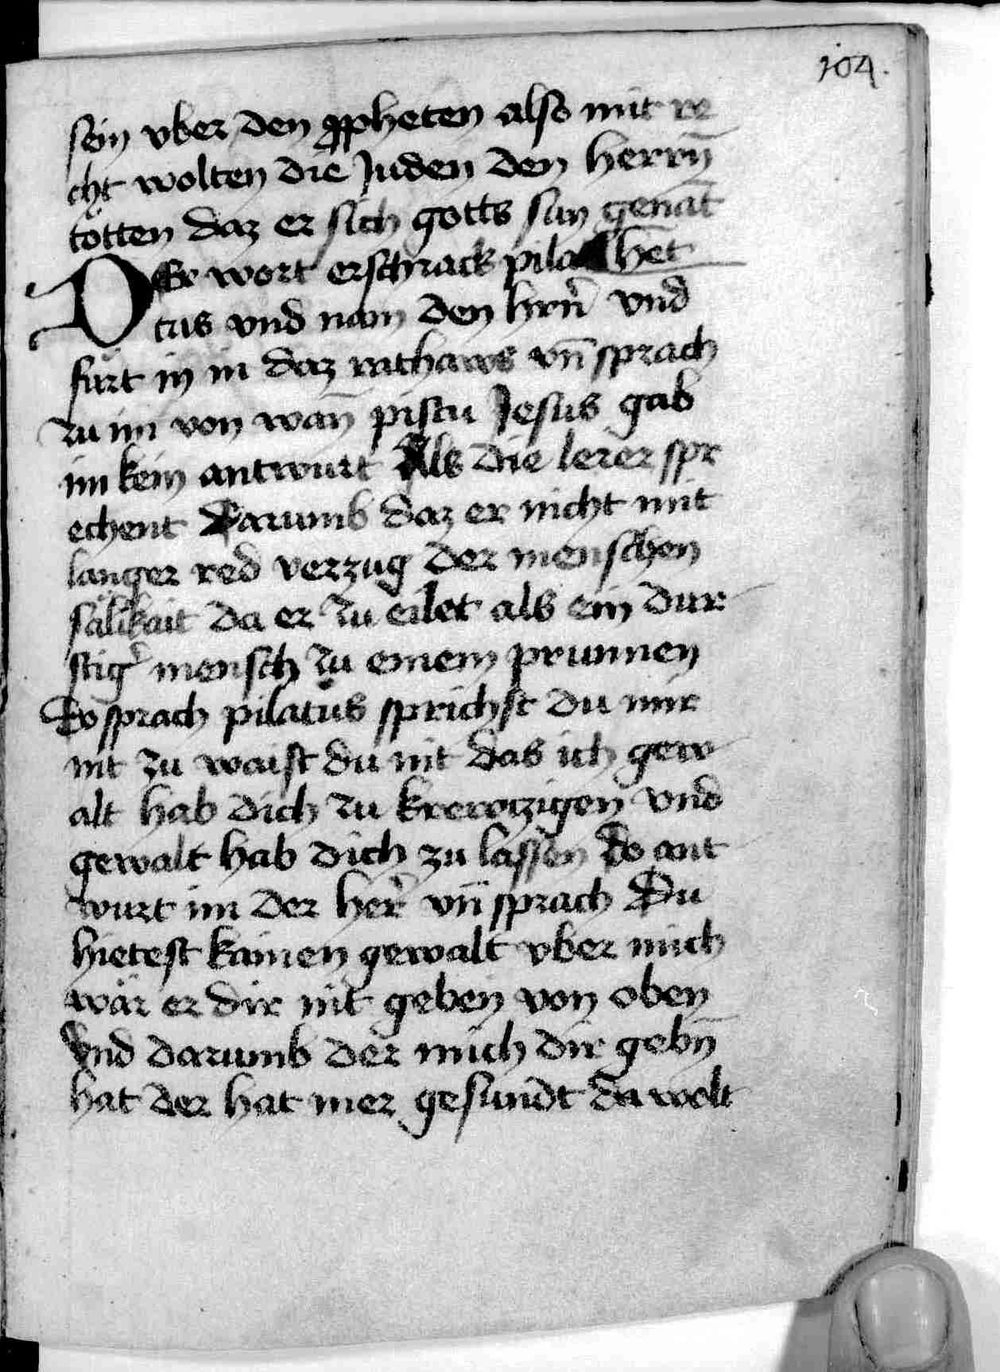 104.
sein vber den ꝓpheten also mit re
cht wolten die Juden den herrn̄
tötten daz er sich gotts sun genāt
Der wort erschrack pila het
tus vnd nam den hrn̄ vnd
furt in in daz rathaws vn̄ sprach
zu im von wan̄ pistu Jesus gab
im kein antwurt Als die lerer spr
echent Darumb daz er nicht mit
langer red verzug der menschen
sälikait da er zu eilet als ein dur
stigͬ mensch zu einem prunnen
Do sprach pilatus sprichst du mir
nit zu waist du nit das ich gew
alt hab dich zu krewtzigen vnd
gewalt hab dich zu lassen Do ant
wurt im der her̄ vn̄ sprach Du
hietest kainen gewalt vber mich
wär er dir nit geben von oben
Vnd darumb der mich dir gebn̄
hat der hat mer gesundt da wolt